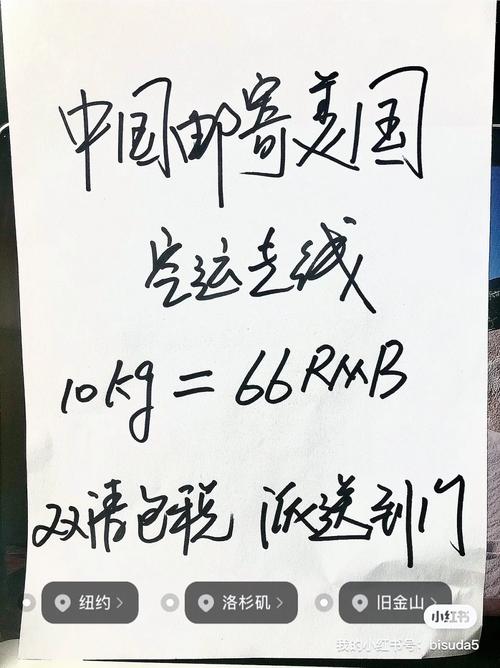 中国邮寄美国
空运走线
10kg = 66RMB
双清包税 派送到门
纽约 > 洛杉矶 > 旧金山 >
小红书
我的小红书号：bisuda5